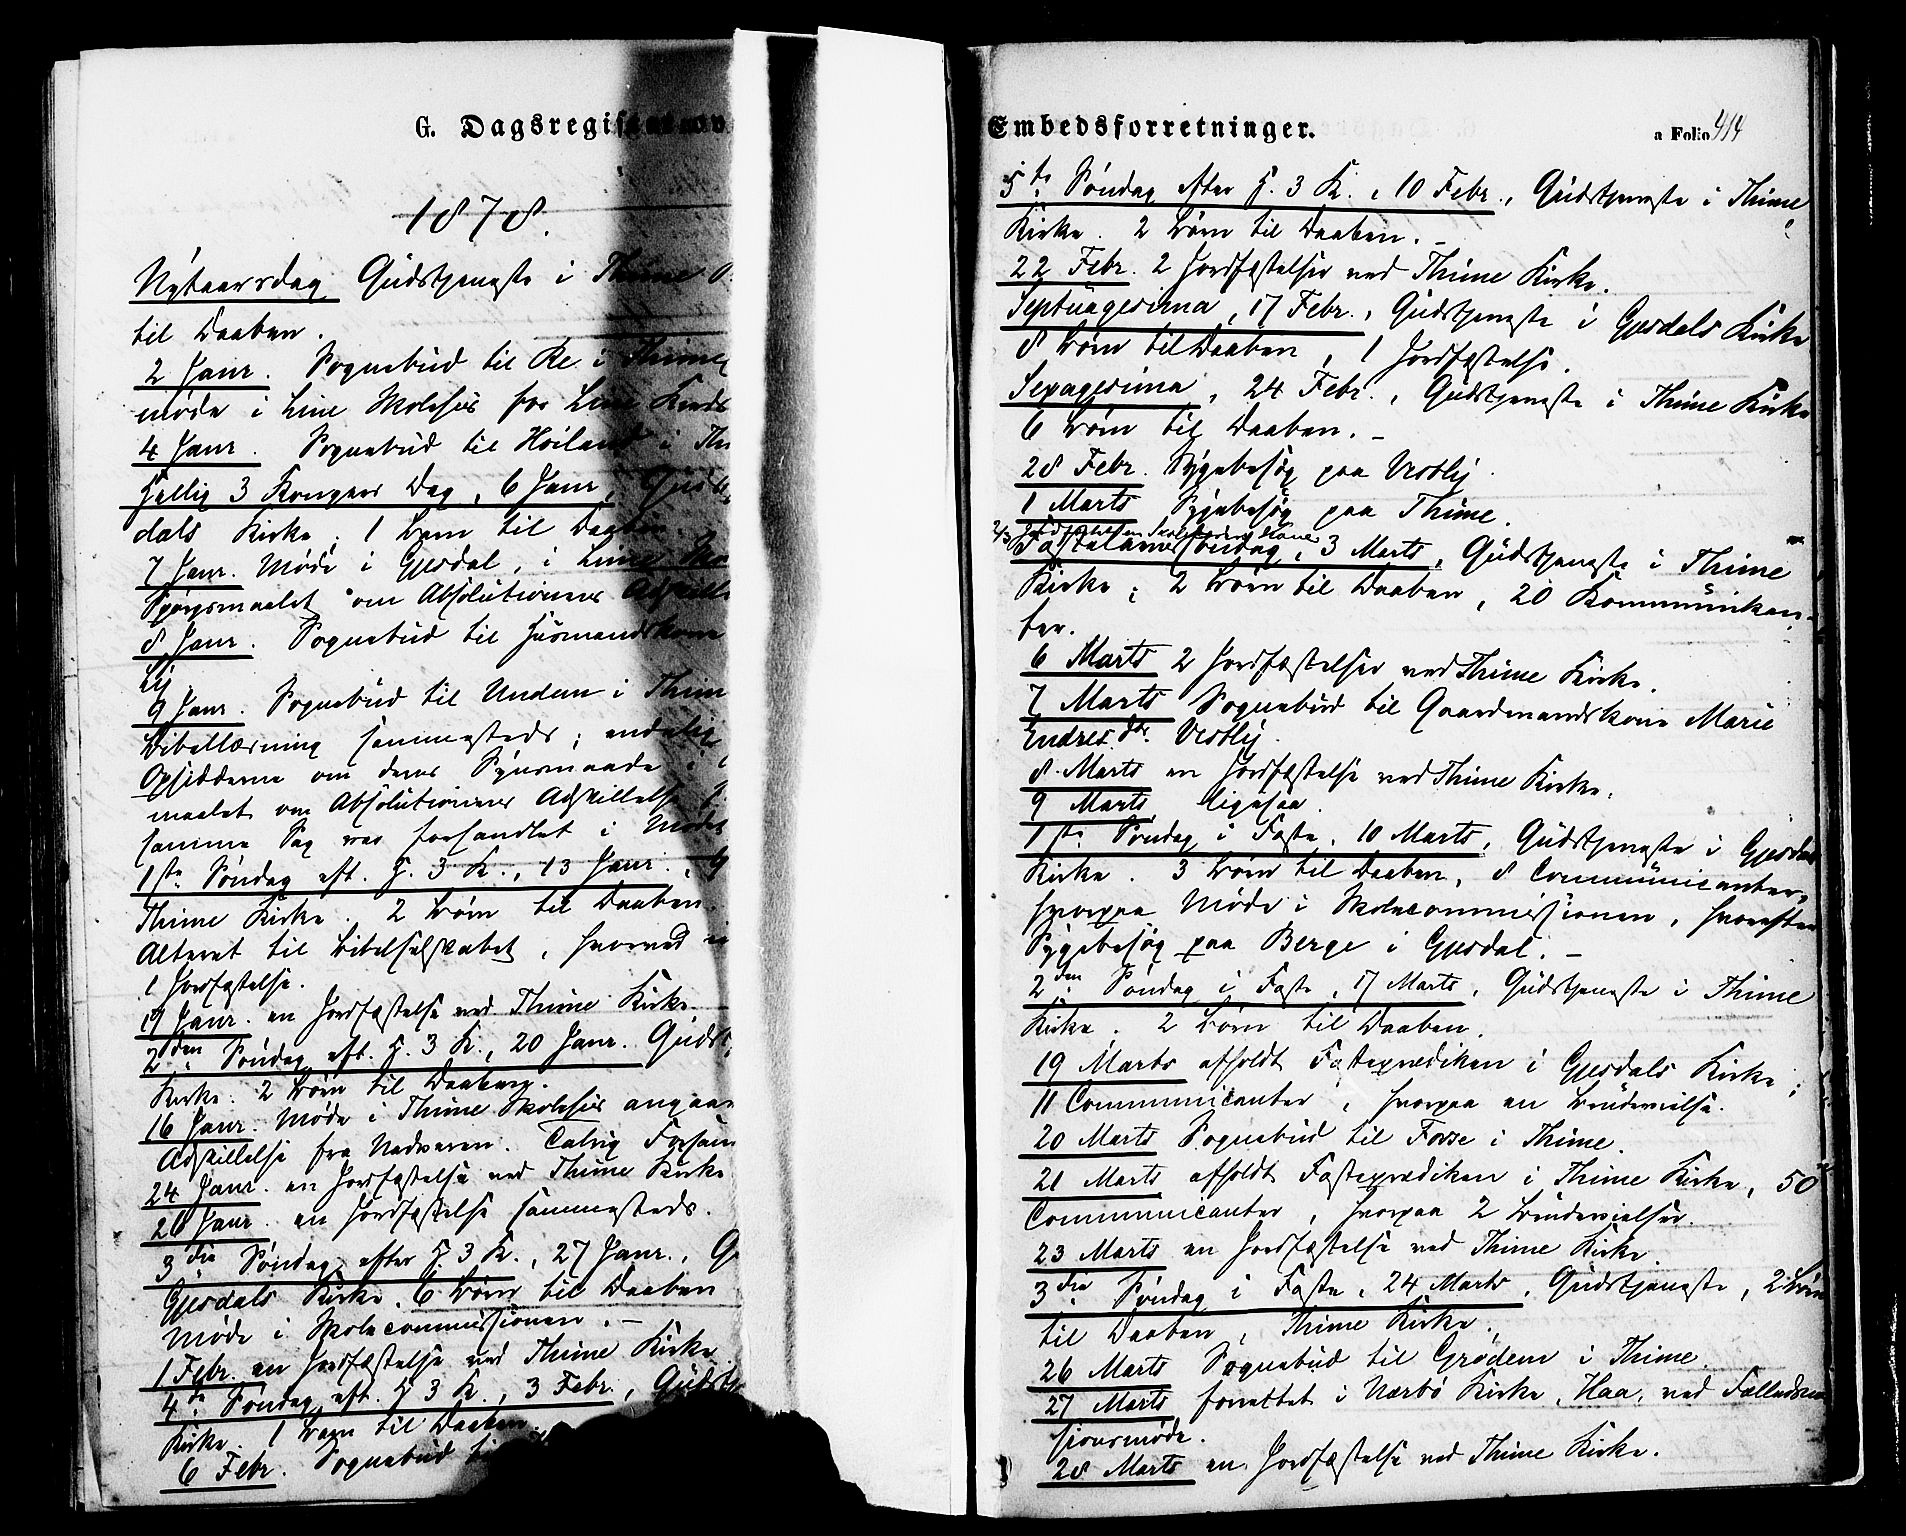 G. Dagsregister ov
1878.
Nytaarsdag Gudstjeneste i Thime
til Daaben.
2 Janr. Sognebud til Re i Thime,
møde i Line Skolehus for Line Kreds
4 Janr. Sognebud til Høiland i Thi
Hellig 3 Kongers Dag, 6 Janr, Guds
dals Kirke, 1 Barn til Daaben
7 Janr. Møde i Gjesdal, i Lime Sko
Spørgsmaalet om Absolutionens Adskille
8 Janr. Sognebud til Husmandskone
Lij
9 Janr. Sognebud til Undem i Thim
Bibellæsning sammesteds; endelig
Opsidderne om deres Synsmaade i
maalet om Absolutionens Adskillelse f
samme Sag var forhandlet i Mødet
1ste Søndag eft. H. 3 K., 13 Janr.,
Thime Kirke. 2 Børn til Daaben.
Alteret til Bibelselskabet, hvorved
1 Jordfæstelse.
19 Janr. en Jordfæstelse ved Thime Kirke.
2den Søndag eft. H. 3 K., 20 Janr. Gudst
Kirke. 2 Børn til Daaben.
16 Janr. Møde i Thime Skolehus angaae
Adskillelse fra Nadveren. Talrig Forsam
24 Janr. en Jordfæstelse ved Thime Kirke
26 Janr. en Jordfæstelse sammesteds.
3die Søndag efter H. 3 K., 27 Janr., G
Gjesdals Kirke. 6 Børn til Daaben
Møde i Skolecommissionen. –
1 Febr. en Jordfæstelse ved Thime Kirke
4de Søndag eft. H 3 K., 3 Febr., Gudstj
Kirke. 1 Barn til Daaben.
6 Febr. Sognebud til
Embedsforretninger.
a Folio 414
5te Søndag efter H. 3 K., 10 Febr., Gudstjeneste i Thime
Kirke. 2 Børn til Daaben. –
22 Febr. 2 Jordfæstelser ved Thime Kirke.
Septuagesima, 17 Febr., Gudstjeneste i Gjesdals Kirke
8 Børn til Daaben, 1 Jordfæstelse.
Sexagesima, 24 Febr., Gudstjeneste i Thime Kirke
6 Børn til Daaben. –
28 Febr. Sygebesøg paa Vestlij.
1 Marts Sygebesøg paa Thime.
2/3 Kone
Fastelavnssøndag, 3 Marts, Gudstjeneste i Thime
Kirke; 2 Børn til Daaben, 20 Kommunikan-
ter.
6 Marts 2 Jordfæstelser ved Thime Kirke.
7 Marts Sognebud til Gaardmandskone Marie
Endresdtr. Vestlij.
8 Marts en Jordfæstelse ved Thime Kirke.
9 Marts ligesaa.
1ste Søndag i Faste, 10 Marts, Gudstjeneste i Gjesdals
Kirke. 3 Børn til Daaben, 8 Communicanter,
hvorpaa Møde i Skolecommissionen, hvorefter
Sygebesøg paa Berge i Gjesdal. –
2den Søndag i Faste, 17 Marts, Gudstjeneste i Thime
Kirke. 2 Børn til Daaben.
19 Marts afholdt Fasteprædiken i Gjesdals Kirke;
11 Communicanter, hvorpaa en Brudevielse.
20 Marts Sognebud til Fosse i Thime.
21 Marts afholdt Fasteprædiken i Thime Kirke, 50
Communicanter, hvorpaa 2 Brudevielser.
23 Marts en Jordfæstelse ved Thime Kirke.
3die Søndag i Faste, 24 Marts, Gudstjeneste, 2 Børn
til Daaben, Thime Kirke.
26 Marts Sognebud til Grødem i Thime.
27 Marts forrettet i Nærbø Kirke, Haa, ved Fælledsmis
sionsmøde.
28 Marts en Jordfæstelse ved Thime Kirke.